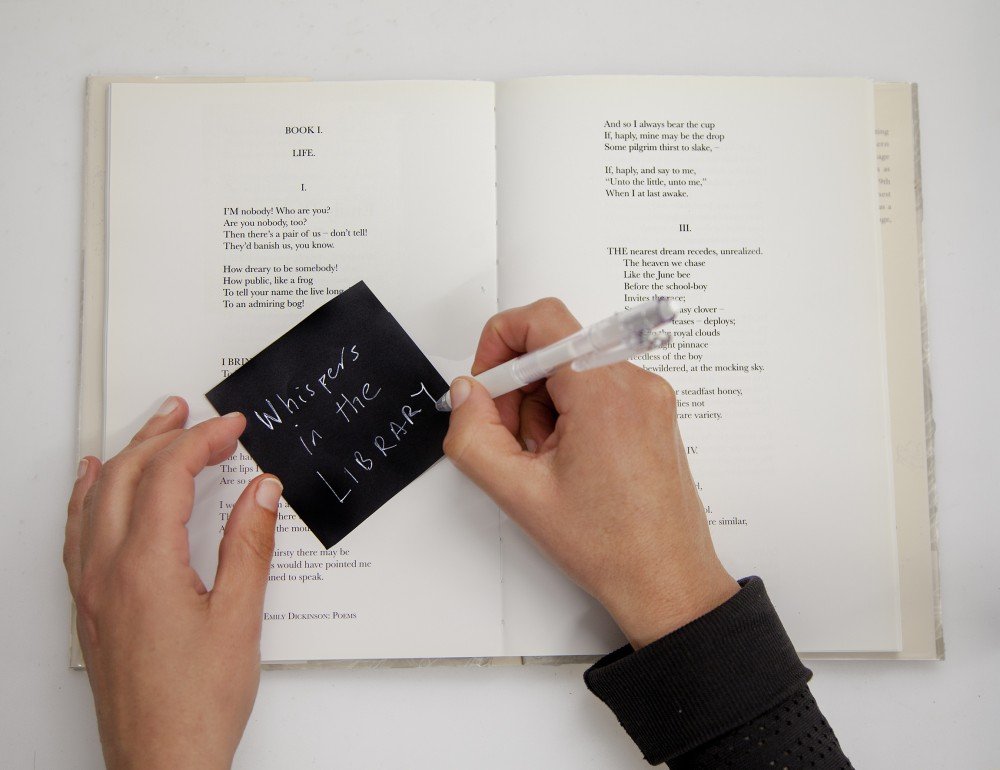 BOOK I.
LIFE.
I.
I'M nobody! Who are you?
Are you nobody, too?
Then there's a pair of us – don't tell!
They'd banish us, you know.
How dreary to be somebody!
How public, like a frog
To tell your name the live long
To an admiring bog!
I
The lips
Are so
I
the
thirsty there may be
would have pointed me
to speak.
EMILY DICKINSON: POEMS
Whispers
in the
LIBRARY
And so I always bear the cup
If, haply, mine may be the drop
Some pilgrim thirst to slake, –
If, haply, and say to me,
“Unto the little, unto me,”
When I at last awake.
III.
THE nearest dream recedes, unrealized.
The heaven we chase
Like the June bee
Before the school-boy
Invites the race;
clover –
teases – deploys;
the royal clouds
pinnace
of the boy
bewildered, at the mocking sky.
steadfast honey,
not
rare variety.
IV.
similar,